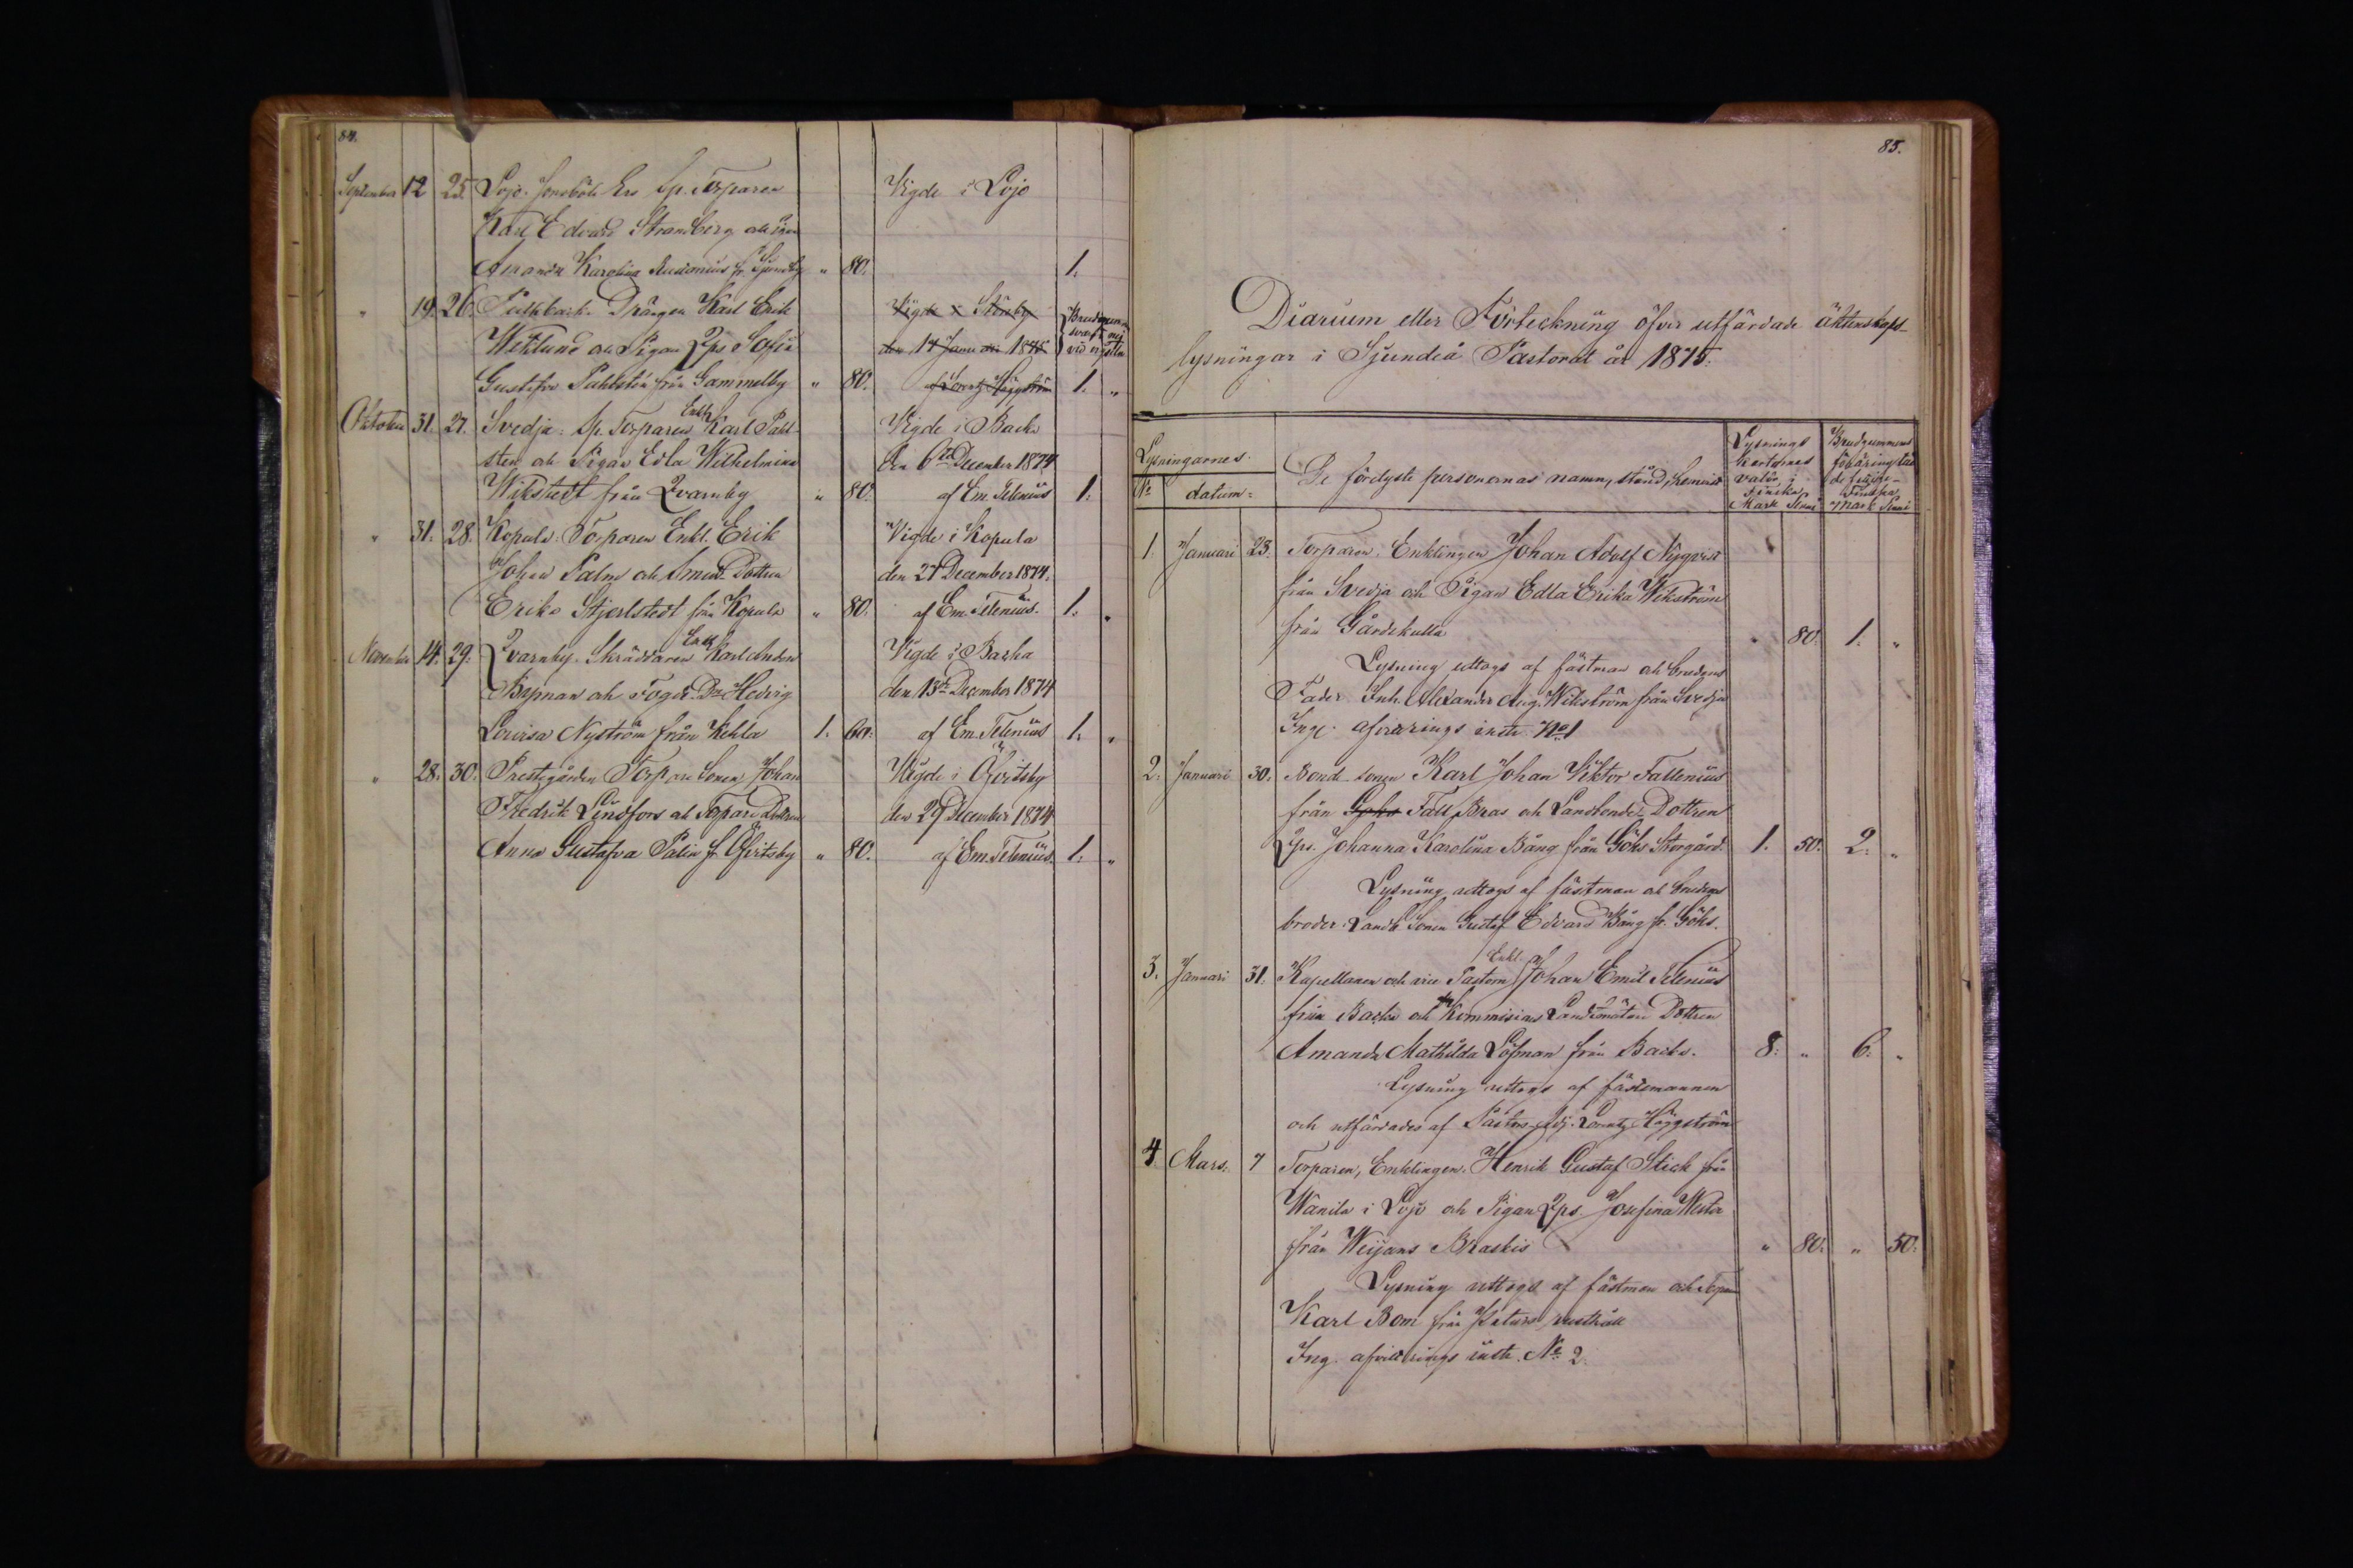 84.
September 12 25. Lojo. Jonsböle Ers Sp. Torparen Vigde i Lojo
Karl Edvard Strandberg och
Amanda Karolina fr. " 80. 1.
" 19. 26. Drängen Karl Erik Vigde Störsby Brudgummen
Wiklund och Pigan Qps Sofia den 17 Januari 1875
Gustafva Pahlstén från Gammelby " 80. af Lorentz Häggström 1. "
Oktober 31. 27. Svedja. Sp. Torparen Enkl. Karl Pahl- Vigde i Backa
sten och Pigan Edla Wilhelmina den 6te December 1874
Wikstedt från Qvarnby " 80. af Em. Telenius 1.
" 31. 28. Kopula. Torparen Enkl. Erik Vigde i Kopula
Johan Palm och Smed-Dottren den 27 December 1874.
Erika Stjerlstedt från Kopula " 80. af Em. Telenius. 1. "
November 14. 29. Qvarnby. Skräddaren Enkl. Karl Anders Vigde i Backa
Nyman och Fogde-Dr Hedvig den 13de December 1874
Lovisa Nyström från Kehla 1. 60. af Em. Telenius 1. "
" 28. 30. Prestgården Torpare Sonen Johan Vigde i Öfvitsby
Fredrik Lindfors och Torpare Dottren den 29 December 1874
Anna Gustafva Palin fr Öfvitsby " 80. af Em. Telenius. 1. "
85.
Diarium eller Förteckning öfver utfärdade äktenskaps-
lysningar i Sjundeå Pastorat år 1875.
Lysningarnes
No datum: De förelyste personernas namn, stånd, hemvist
Lysnings
Kartornes
valör i
Finska
Mark Penni
Brudgummens
Finska
Mark Penni
1. Januari 23. Torparen, Enklingen Johan Adolf Nyqvist
från Svedja och Pigan Edla Erika Wikström
från Gårdskulla " 80. 1. "
Lysning uttogs af fästman och brudens
Fader Inh. Alexander Aug. Wikström från Svedja
Ingl. afvittrings inst. No 1
2. Januari 30. Bond-sonen Karl Johan Viktor Fallenius
från Göks Fall Bras och Landbonde-Dottren
Qps. Johanna Karolina Bång från Göks Storgård. 1. 50. 2. "
Lysning uttogs af fästman och brudens
broder Landb. Sonen Gustaf Edvard Bång fr. Göks.
3. Januari 31. Kapellanen och vice Pastorn Enkl. Johan Emil Telenius
från Backa och Kommissions Landtmätare Dottren
Amanda Mathilda Löfman från Backa. 8. " 6. "
Lysning uttogs af fästemannen
och utfärdades af Pastors-Adj. Lorentz Häggström
4. Mars. 7 Torparen, Enklingen. Henrik Gustaf Stick från
Wanila i Lojo och Pigan Qps. Josefina
från Weijans Braskis " 80. " 50.
Lysning uttogs af fästman och
Karl Bom från rusthåll
Ing. afvittrings inst. No 2.